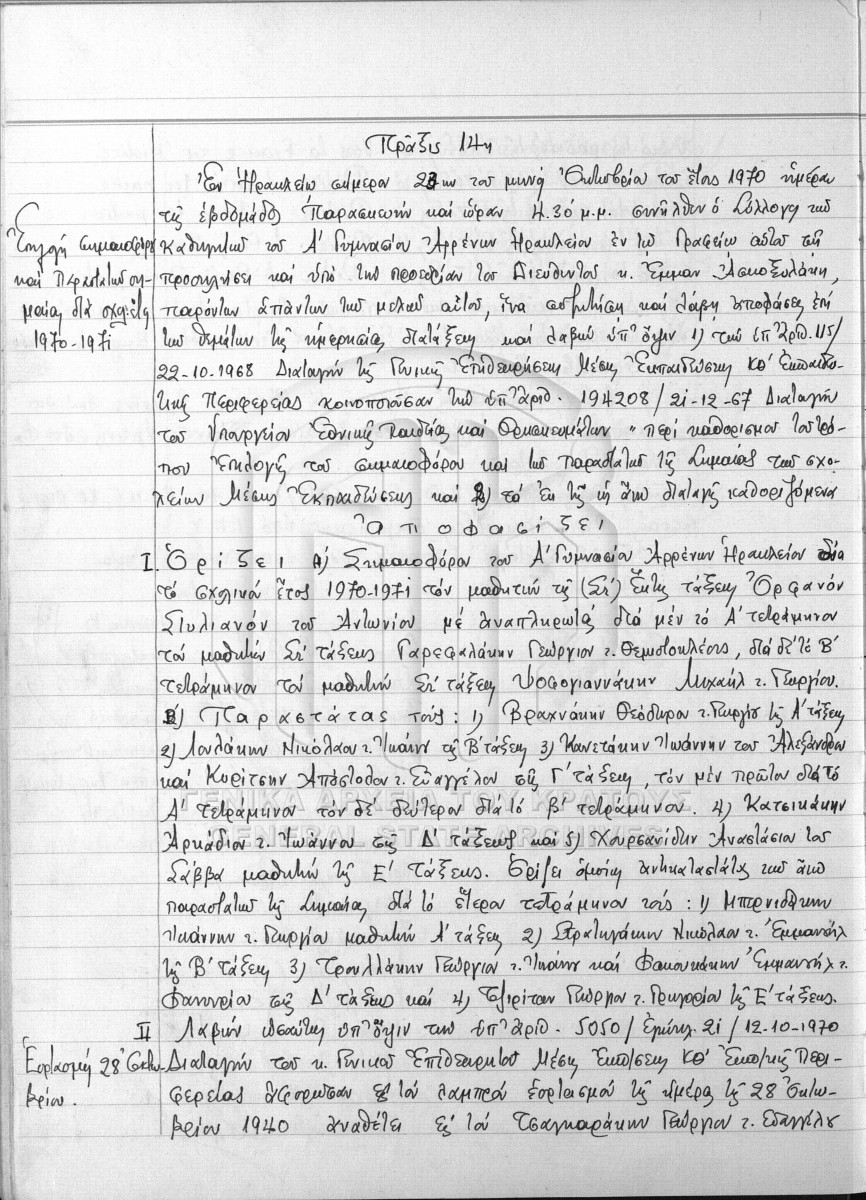 Πρᾶξις 14η
Ἐν Ἡρακλείῳ σήμερον 23ην τοῦ μηνός Ὀκτωβρίου τοῦ ἔτους 1970 ἡμέραν
τῆς ἑβδομάδος Παρασκευήν καί ὥραν 4.30 μ.μ. συνῆλθεν ὁ Σύλλογος τῶν
Ἐκλογή σημαιοφόρου
καθηγητῶν τοῦ Α' Γυμνασίου Ἀρρένων Ἡρακλείου ἐν τῷ Γραφείῳ αὐτοῦ τῇ
καί Παραστατῶν ση-
προσκλήσει καί ὑπό τήν προεδρίαν τοῦ Διευθυντοῦ κ. Ἐμμαν. Ἀσκοξυλάκη,
μαίας διά σχ. ἔτος
παρόντων ἁπάντων τῶν μελῶν αὐτοῦ, ἵνα συζητήσῃ καί λάβῃ ἀποφάσεις ἐπί
1970-1971
τῶν θεμάτων τῆς ἡμερησίας διατάξεως καί λαβών ὑπ' ὄψιν 1) τήν ὑπ' ἀριθ. 115/
22-10-1968 Διαταγήν τῆς Γενικῆς Ἐπιθεωρήσεως Μέσης Ἐκπαιδεύσεως Κθ' Ἐκπαιδευ-
τικῆς Περιφερείας κοινοποιοῦσαν τήν ὑπ' ἀριθ. 194208/21-12-67 Διαταγήν
τοῦ Ὑπουργείου Ἐθνικῆς Παιδείας καί Θρησκευμάτων "περί καθορισμοῦ τοῦ τρό-
που ἐκλογῆς τοῦ σημαιοφόρου καί τῶν παραστατῶν τῆς Σημαίας τῶν σχο-
λείων Μέσης Ἐκπαιδεύσεως καί 2) τά ἐν τῇ ὡς ἄνω διαταγῇ καθοριζόμενα
Ἀποφασίζει
I. Ὁρίζει Α) Σημαιοφόρον τοῦ Α' Γυμνασίου Ἀρρένων Ἡρακλείου διά
τό σχολικόν ἔτος 1970-1971 τόν μαθητήν τῆς (Στ') Ἕκτης τάξεως Ὀρφανόν
Στυλιανόν τοῦ Ἀντωνίου μέ ἀναπληρωτάς διά μέν τό Α' τετράμηνον
τόν μαθητήν Στ' τάξεως Γαρεφαλάκην Γεώργιον τ. Θεμιστοκλέους, διά δέ τό Β'
τετράμηνον τόν μαθητήν Στ' τάξεως Ψαρογιαννάκην Μιχαήλ τ. Γεωργίου.
Β) Παραστάτας τούς: 1) Βραχνάκην Θεόδωρον τ. Γεωργίου τῆς Α' τάξεως
2) Λουλάκην Νικόλαον τ. Ἰωάννου τῆς Β' τάξεως 3) Κανετάκην Ἰωάννην τοῦ Ἀλεξάνδρου
καί Κυρίτσην Ἀπόστολον τ. Εὐαγγέλου τῆς Γ' τάξεως, τόν μέν πρῶτον διά τό
Α' τετράμηνον τόν δέ δεύτερον διά τό Β' τετράμηνον. 4) Κατσικάκην
Ἀρκάδιον τ. Ἰωάννου τῆς Δ' τάξεως καί 5) Χουρσανίδην Ἀναστάσιον τοῦ
Σάββα μαθητήν τῆς Ε' τάξεως. Ὁρίζει ὁμοίως ἀντικαταστάτας τῶν ἄνω
παραστατῶν τῆς Σημαίας διά τό ἕτερον τετράμηνον τούς: 1)
Ἰωάννην τ. Γεωργίου μαθητήν Α' τάξεως 2) Στρατηγάκην Νικόλαον τ. Ἐμμανουήλ
τῆς Β' τάξεως 3) Τρουλλάκην Γεώργιον τ. Ἰωάννου καί Φακουκάκην Ἐμμανουήλ τ.
Φανουρίου τῆς Δ' τάξεως καί 4) Τζιρίταν Γεώργιον τ. Γρηγορίου τῆς Ε' τάξεως.
II Λαβών ὡσαύτως ὑπ' ὄψιν τήν ὑπ' ἀριθ. 5050/ 21/12-10-1970
Ἑορτασμός 28 Ὀκτω-
Διαταγήν τοῦ κ. Γενικοῦ Ἐπιθεωρητοῦ Μέσης Ἐκπ/σεως Κθ' Ἐκπ/κῆς Περι-
βρίου.
φερείας ἀφορῶσαν εἰς τόν λαμπρόν ἑορτασμόν τῆς ἡμέρας τῆς 28 Ὀκτω-
βρίου 1940 ἀναθέτει εἰς τόν Τσαγκαράκην Γεώργιον τ. Εὐαγγέλου
ΓΕΝΙΚΑ ΑΡΧΕΙΑ ΤΟΥ ΚΡΑΤΟΥΣ
GENERAL STATE ARCHIVES